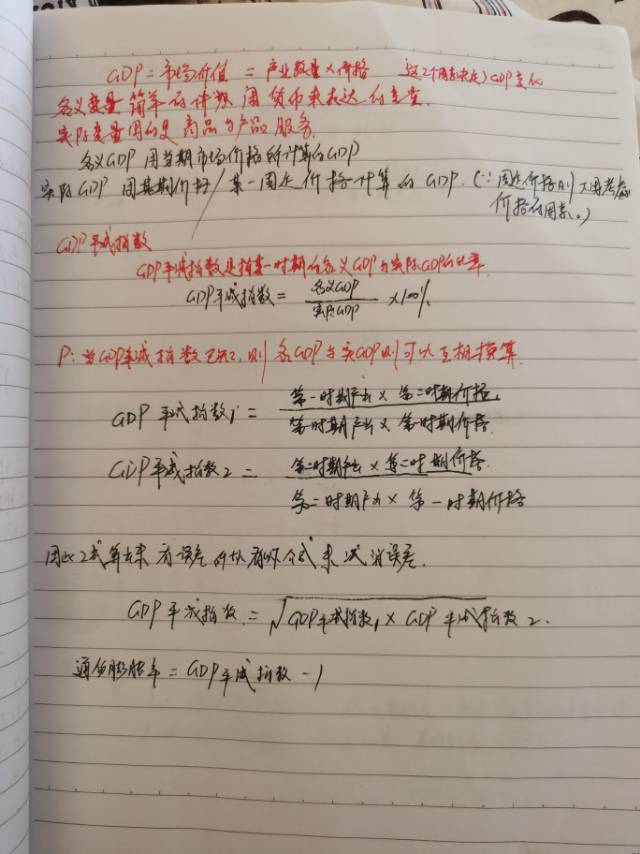 GDP=市场价值 = 产业数量×价格 这2个因素决定)GDP变化
名义变量 简单的计数 用货币来表达的变量.
实际变量用的是 商品与产品 服务.
名义GDP 用当期市场价格所计算的GDP
实际GDP 用基期价格/某一固定价格计算的GDP.(∵固定价格则不用考虑
价格的因素。)
GDP平减指数
GDP平减指数是指某一时期的名义GDP与实际GDP的比率
GDP平减指数= 名义GDP/实际GDP ×100%
P: 当GDP平减指数已知, 则名GDP与实GDP则可以互相换算.
GDP平减指数1= 第一时期产出×第二时期价格/第一时期产出×第一时期价格
GDP平减指数2= 第二时期产出×第二时期价格/第二时期产出×第一时期价格
因此2式算出来有误差 所以有如公式来减消误差.
GDP平减指数=√GDP平减指数1×GDP平减指数2.
通货膨胀率=GDP平减指数-1